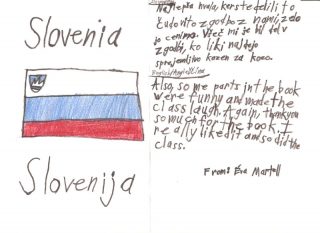 Slovenia
Slovenija
Najlepša hvala, ker ste delili to
čudovito zgodbo z nami, z do
je cenima. Všeč mi je bil del v
zgodbi, ko liki najdejo
sprejemljivo kazen za kovo.
Also, some parts in the book
were funny and made the
class laugh. Again, thank you
so much for the book. I
really liked it and so did the
class.
From: Eva Martell